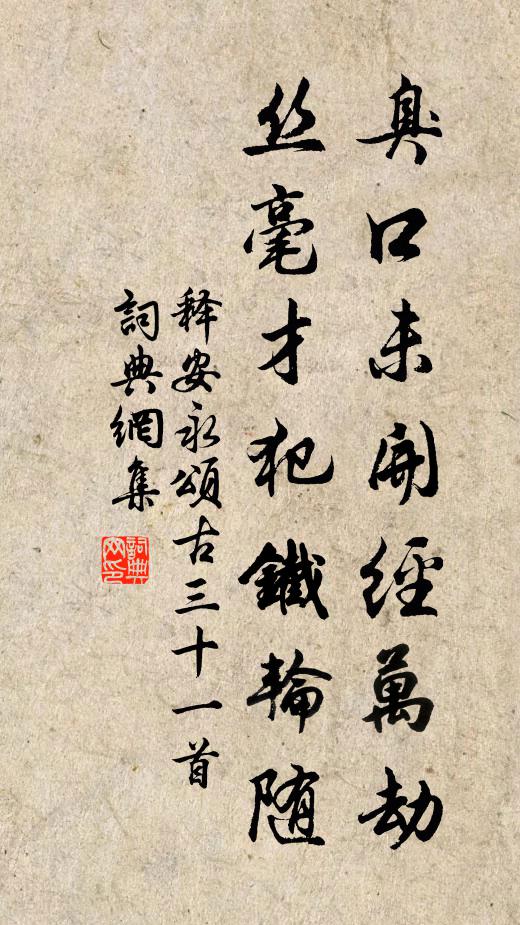 臭口未開經萬劫
丝毫才犯鐵輪随
释安永頌古三十一首
詞典網集
詞典网印